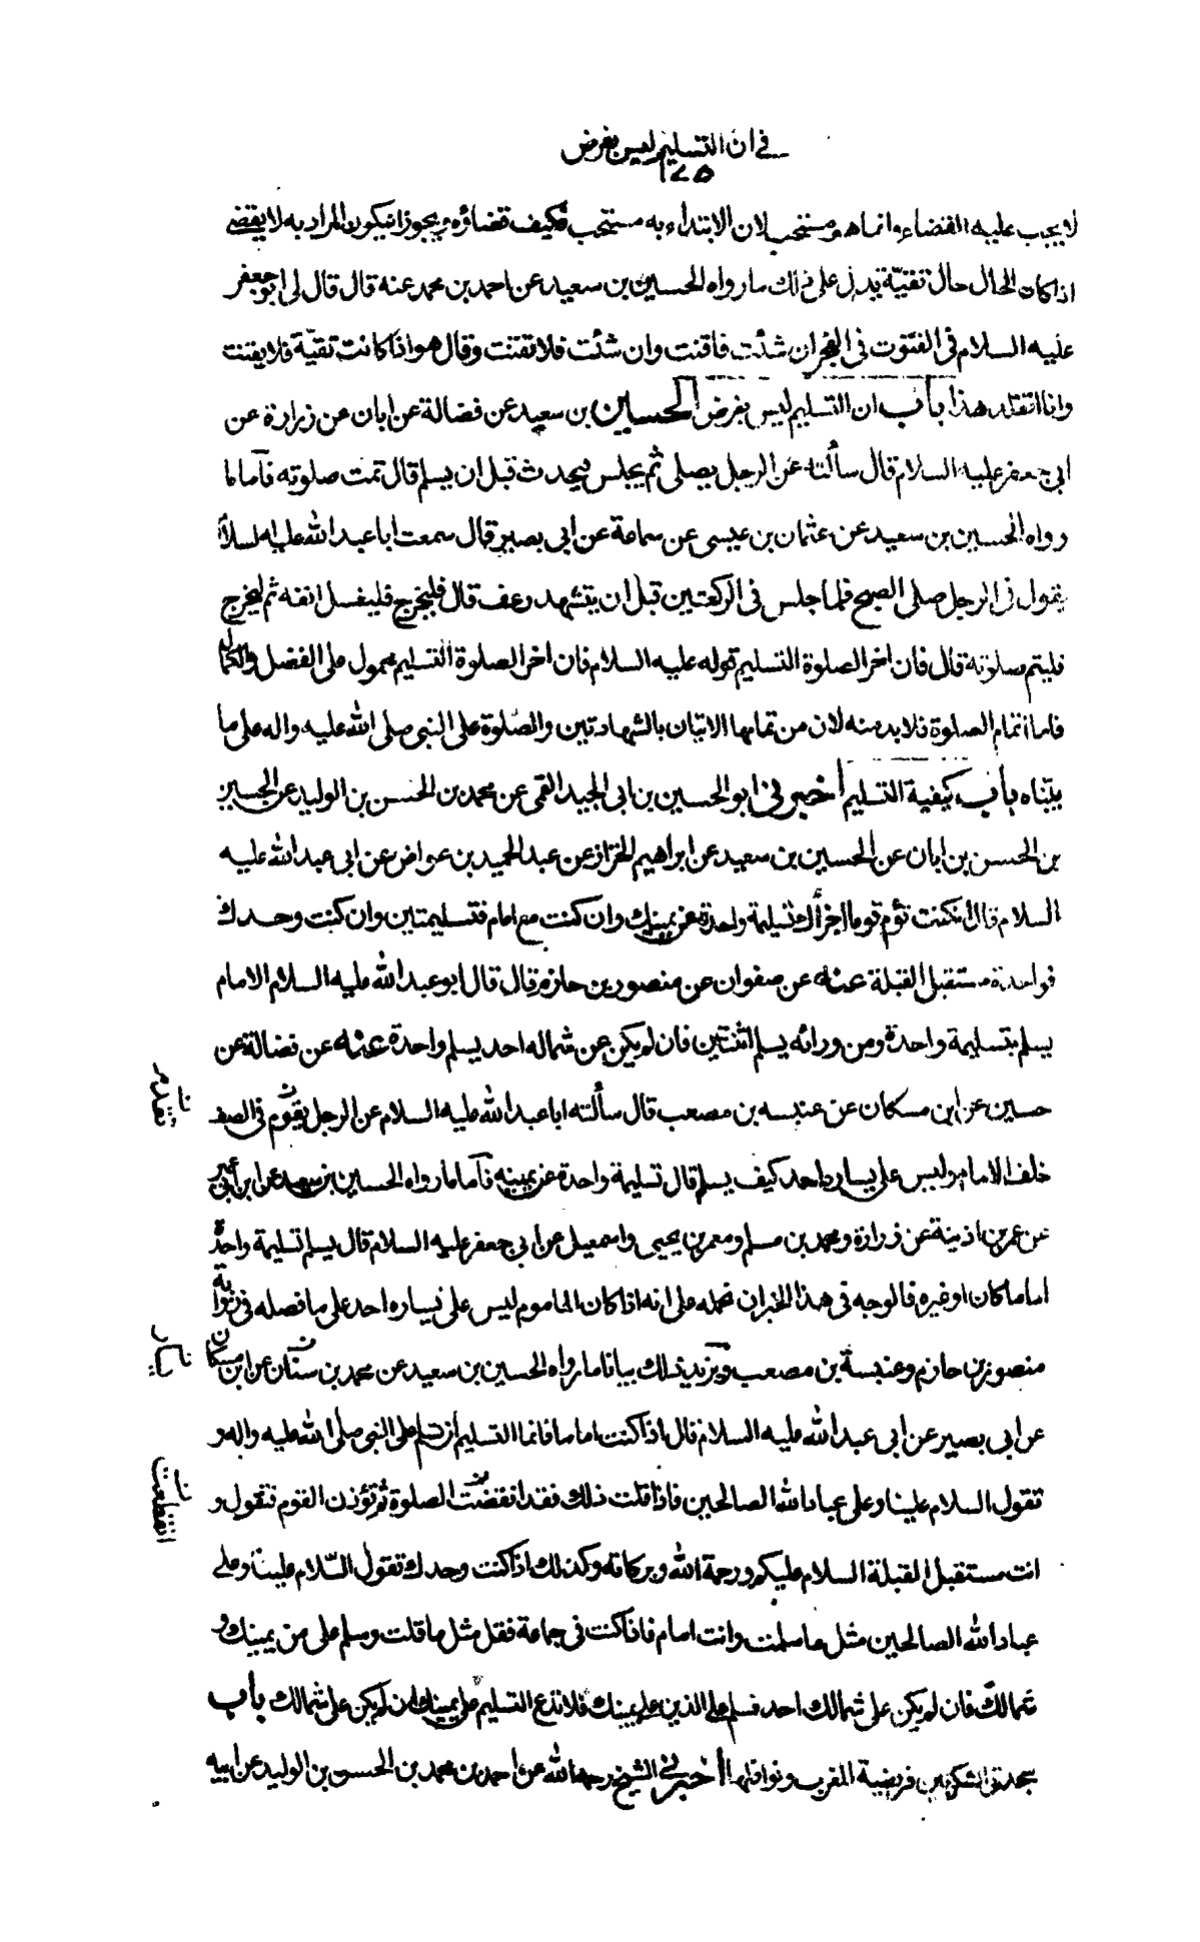 في ان التسليم ليس بفرض
١٧٥
لا يجب عليه القضاء وانما هو مستحب لان الابتداء به مستحب فكيف قضاؤه ويجوز ان يكون المراد به لا يقضى
اذا كان الحال حال تقيّة يدل على ذلك ما رواه الحسين بن سعيد عن احمد بن محمد عنه قال قال لى ابو جعفر
عليه السلام فى القنوت فى الفجر ان شئت فاقنت وان شئت فلا تقنت وقال هو اذا كانت تقيّة فلا يقنت
وانا اتقلد هذا باب ان التسليم ليس بفرض الحسين بن سعيد عن فضالة عن ابان عن زرارة عن
ابى جعفر عليه السلام قال سألته عن الرجل يصلى ثم يجلس فيحدث قبل ان يسلم قال تمت صلوته فاما ما
رواه الحسين بن سعيد عن عثمان بن عيسى عن سماعة عن ابى بصير قال سمعت ابا عبد الله عليه السلام
يقول فى الرجل صلى الصبح فلما جلس فى الركعتين قبل ان يتشهد رعف قال فليخرج فليغسل انفه ثم ليخرج
فليتم صلوته قال فان اخر الصلوة التسليم قوله عليه السلام فان اخر الصلوة التسليم محمول على الفضل والكمال
فاما اتمام الصلوة فلا بد منه لان من تمامها الاتيان بالشهادتين والصلوة على النبى صلى الله عليه واله على ما
بيّناه باب كيفية التسليم اخبرنى ابو الحسين بن ابى الجيد القمى عن محمد بن الحسن بن الوليد عن الحسين
بن الحسن بن ابان عن الحسين بن سعيد عن ابراهيم الخراز عن عبد الحميد بن عواض عن ابى عبد الله عليه
السلام قال ان كنت تؤم قوما اجزأك تسليمة واحدة عن يمينك وان كنت مع امام فتسليمتين وان كنت وحدك
فواحدة مستقبل القبلة عنه عن صفوان عن منصور بن حازم قال قال ابو عبد الله عليه السلام الامام
يسلم بتسليمة واحدة ومن ورائه يسلم اثنتين فان لم يكن عن شماله احد يسلم واحدة عنه عن فضالة عن
حسين عن ابن مسكان عن عنبسه بن مصعب قال سألته ابا عبد الله عليه السلام عن الرجل يقوم فى الصف
خلف الامام وليس على يساره احد كيف يسلم قال تسليمة واحدة عن يمينه فاما ما رواه الحسين بن سعيد عن ابن ابى عمير
عن عمر بن اذينة عن زرارة ومحمد بن مسلم ومعمر بن يحيى واسمعيل عن ابى جعفر عليه السلام قال يسلم تسليمة واحدة
اماما كان او غيره فالوجه فى هذا الخبر ان نحمله على انه اذا كان الماموم ليس على يساره احد على ما فصله فى رواية
منصور بن حازم وعنبسة بن مصعب ويزيد ذلك بيانا ما رواه الحسين بن سعيد عن محمد بن سنان عن ابن مسكان
عن ابى بصير عن ابى عبد الله عليه السلام قال اذا كنت اماما فانما التسليم ان تسلم على النبى صلى الله عليه واله و
تقول السلام علينا وعلى عباد الله الصالحين فاذا قلت ذلك فقد انقضت الصلوة ثم تؤذن القوم فتقول و
انت مستقبل القبلة السلام عليكم ورحمة الله وبركاته وكذلك اذا كنت وحدك تقول السّلام علينا وعلى
عباد الله الصالحين مثل ما سلمت وانت امام فاذا كنت فى جماعة فقل مثل ما قلت وسلم على من يمينك و
شمالك فان لم يكن على شمالك احد فسلم على الذين على يمينك فلا تدع التسليم على يمينك ان لم يكن على شمالك باب
سجدتى الشكر بين فريضة المغرب ونوافلها اخبرنى الشيخ رحمه الله عن احمد بن محمد بن الحسن بن الوليد عن ابيه
يتقدم
انقطعت